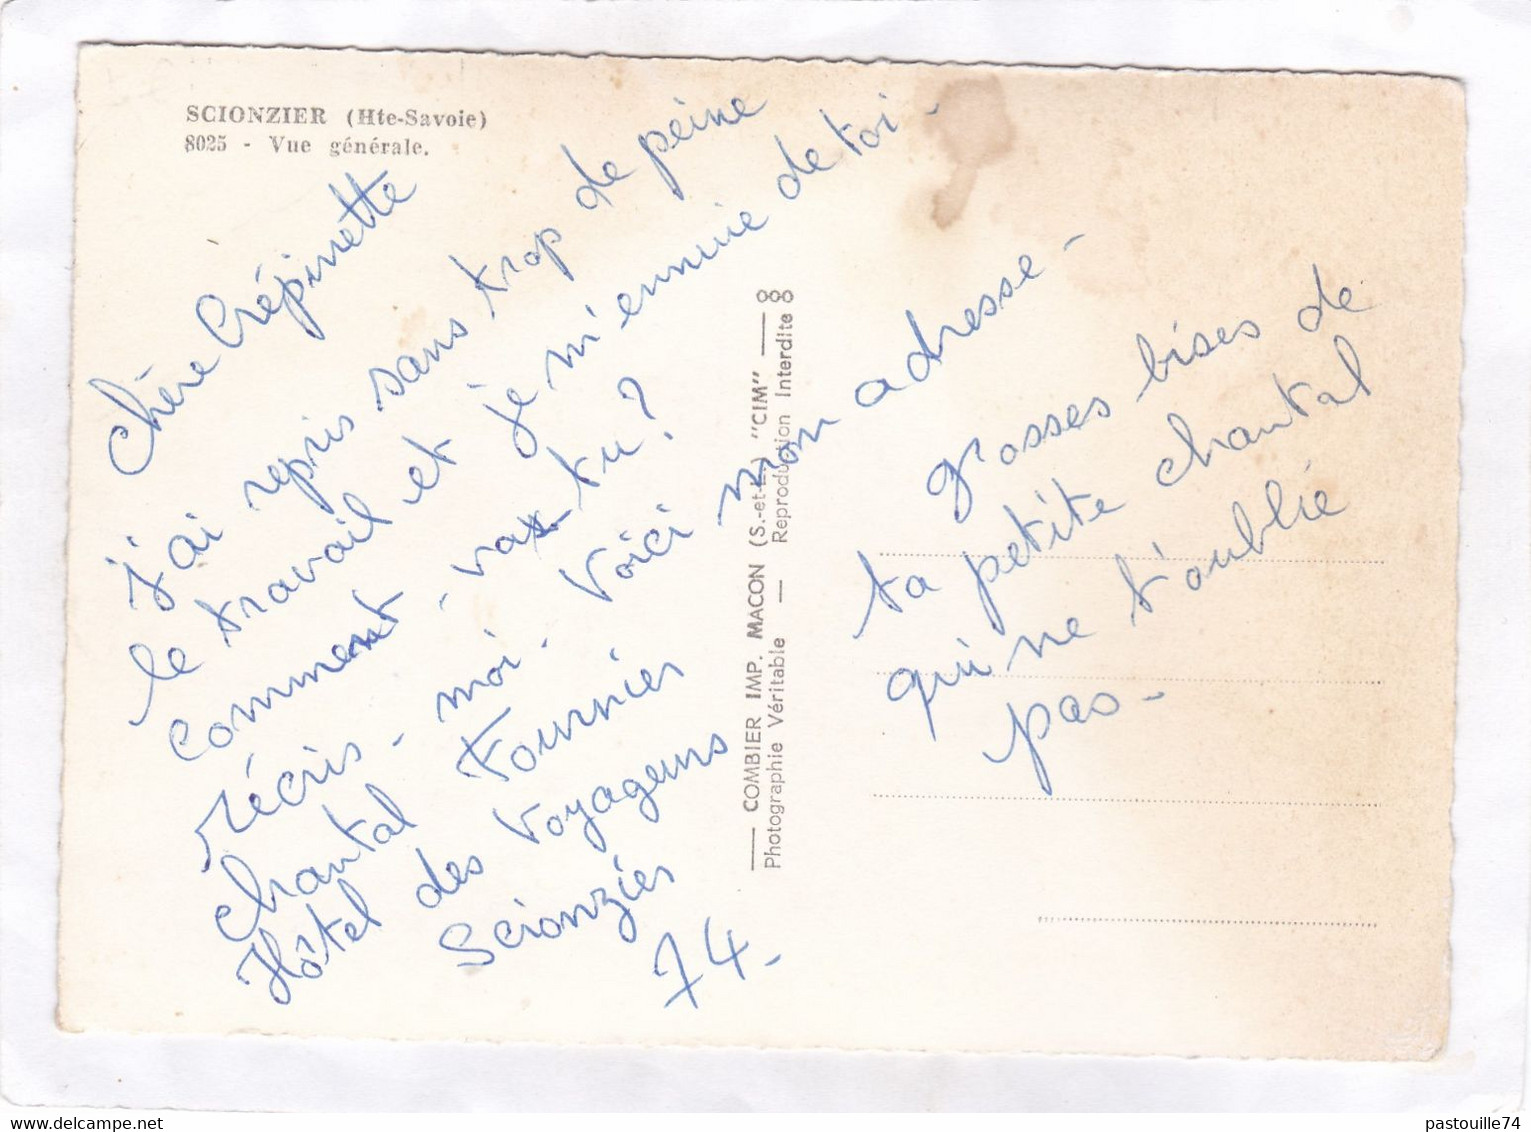 SCIONZIER (Hte-Savoie)
8025 - Vue générale.
Chère Crépinette
J'ai repris sans trop de peine
le travail et je m'ennuie de toi -
comment - vas-tu ?
récris - moi. Voici mon adresse -
Chantal Fournier
Hôtel des Voyageurs
Scionzier
74 -
grosses bises de
ta petite chantal
qui ne t'oublie
pas -
— COMBIER IMP. MACON (S.-et-L.) "CIM" —
Photographie Véritable — Reproduction Interdite
pastouille74